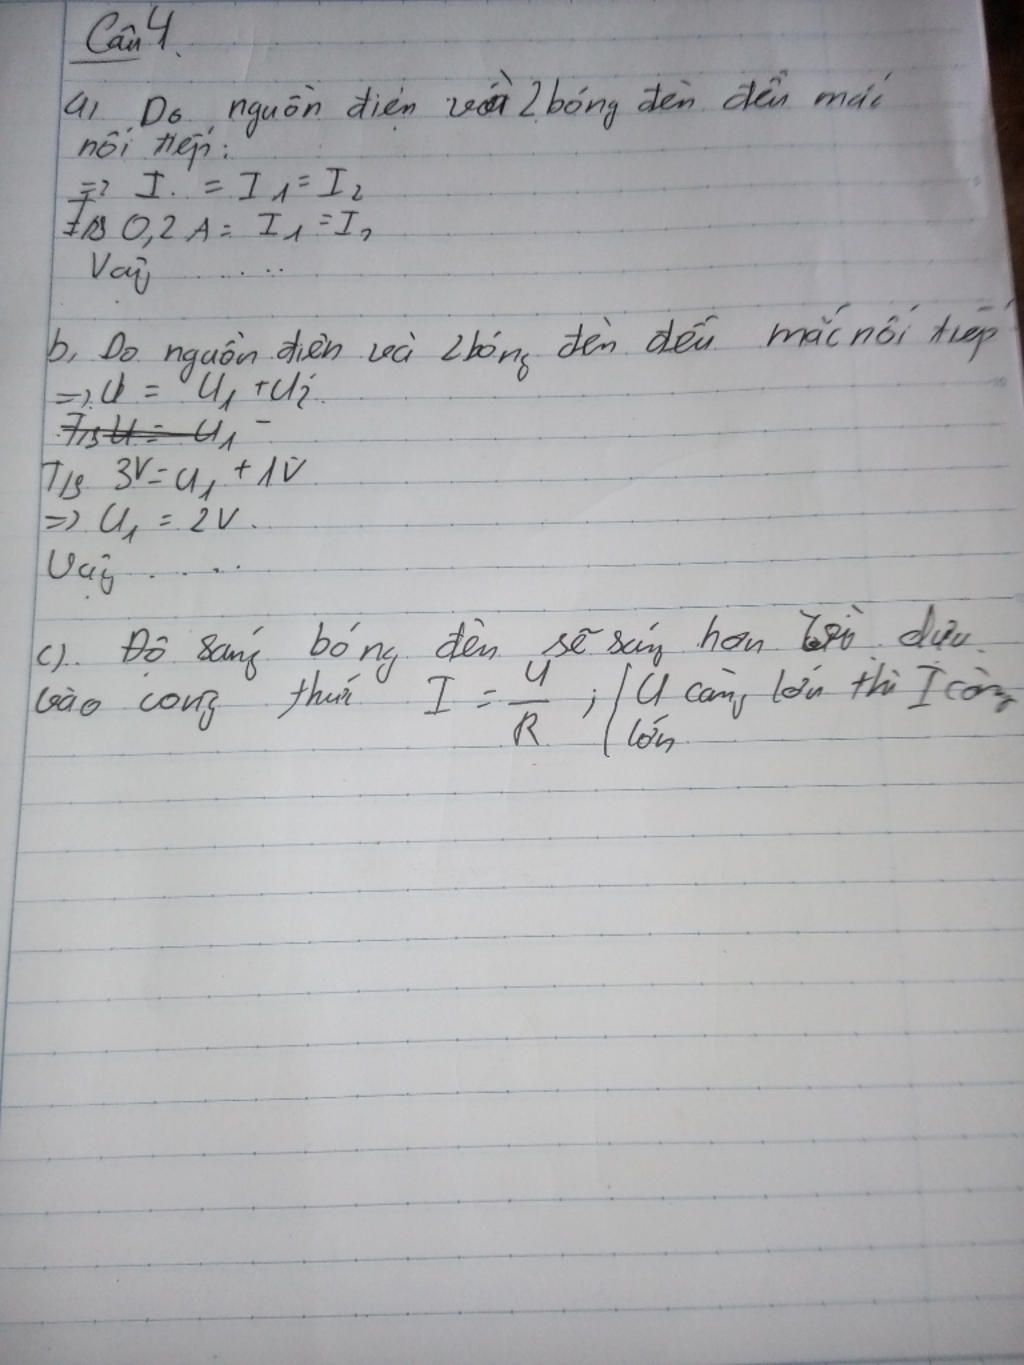 Câu 4.
a, Do nguồn điện và 2 bóng đèn đều mắc
nối tiếp:
=> I = I1 = I2
T/s 0,2 A = I1 = I2
Vậy ......
b, Do nguồn điện và 2 bóng đèn đều mắc nối tiếp
=> U = U1 + U2
T/s U = U1 -
T/s 3V = U1 + 1V
=> U1 = 2V.
Vậy .....
c). Độ sáng bóng đèn sẽ sáng hơn dựa
vào công thức I = U/R ; ( U càng lớn thì I càng
lớn